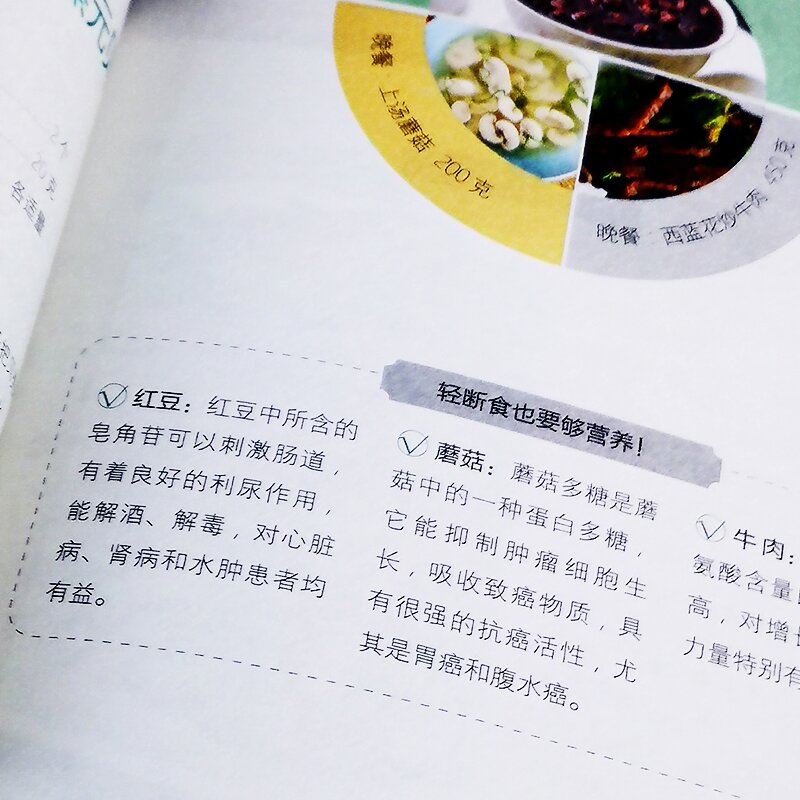 晚餐 上汤蘑菇 200克
晚餐 西蓝花炒牛肉 450克
各适量
轻断食也要够营养！
红豆：红豆中所含的
皂角苷可以刺激肠道，
有着良好的利尿作用，
能解酒、解毒，对心脏
病、肾病和水肿患者均
有益。
蘑菇：蘑菇多糖是蘑
菇中的一种蛋白多糖，
它能抑制肿瘤细胞生
长，吸收致癌物质，具
有很强的抗癌活性，尤
其是胃癌和腹水癌。
牛肉：
氨酸含量
高，对增长
力量特别有